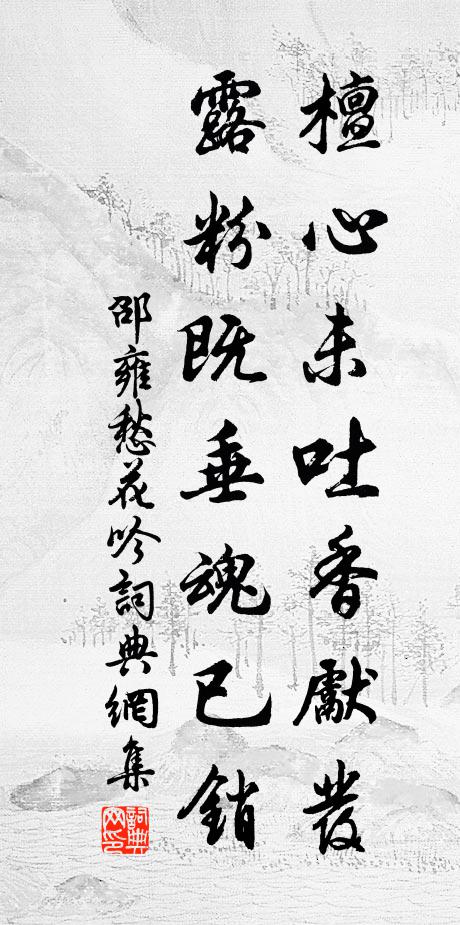 檀心未吐香獻發
露粉既垂魂已銷
邵雍愁花吟詞典網集
詞典網印